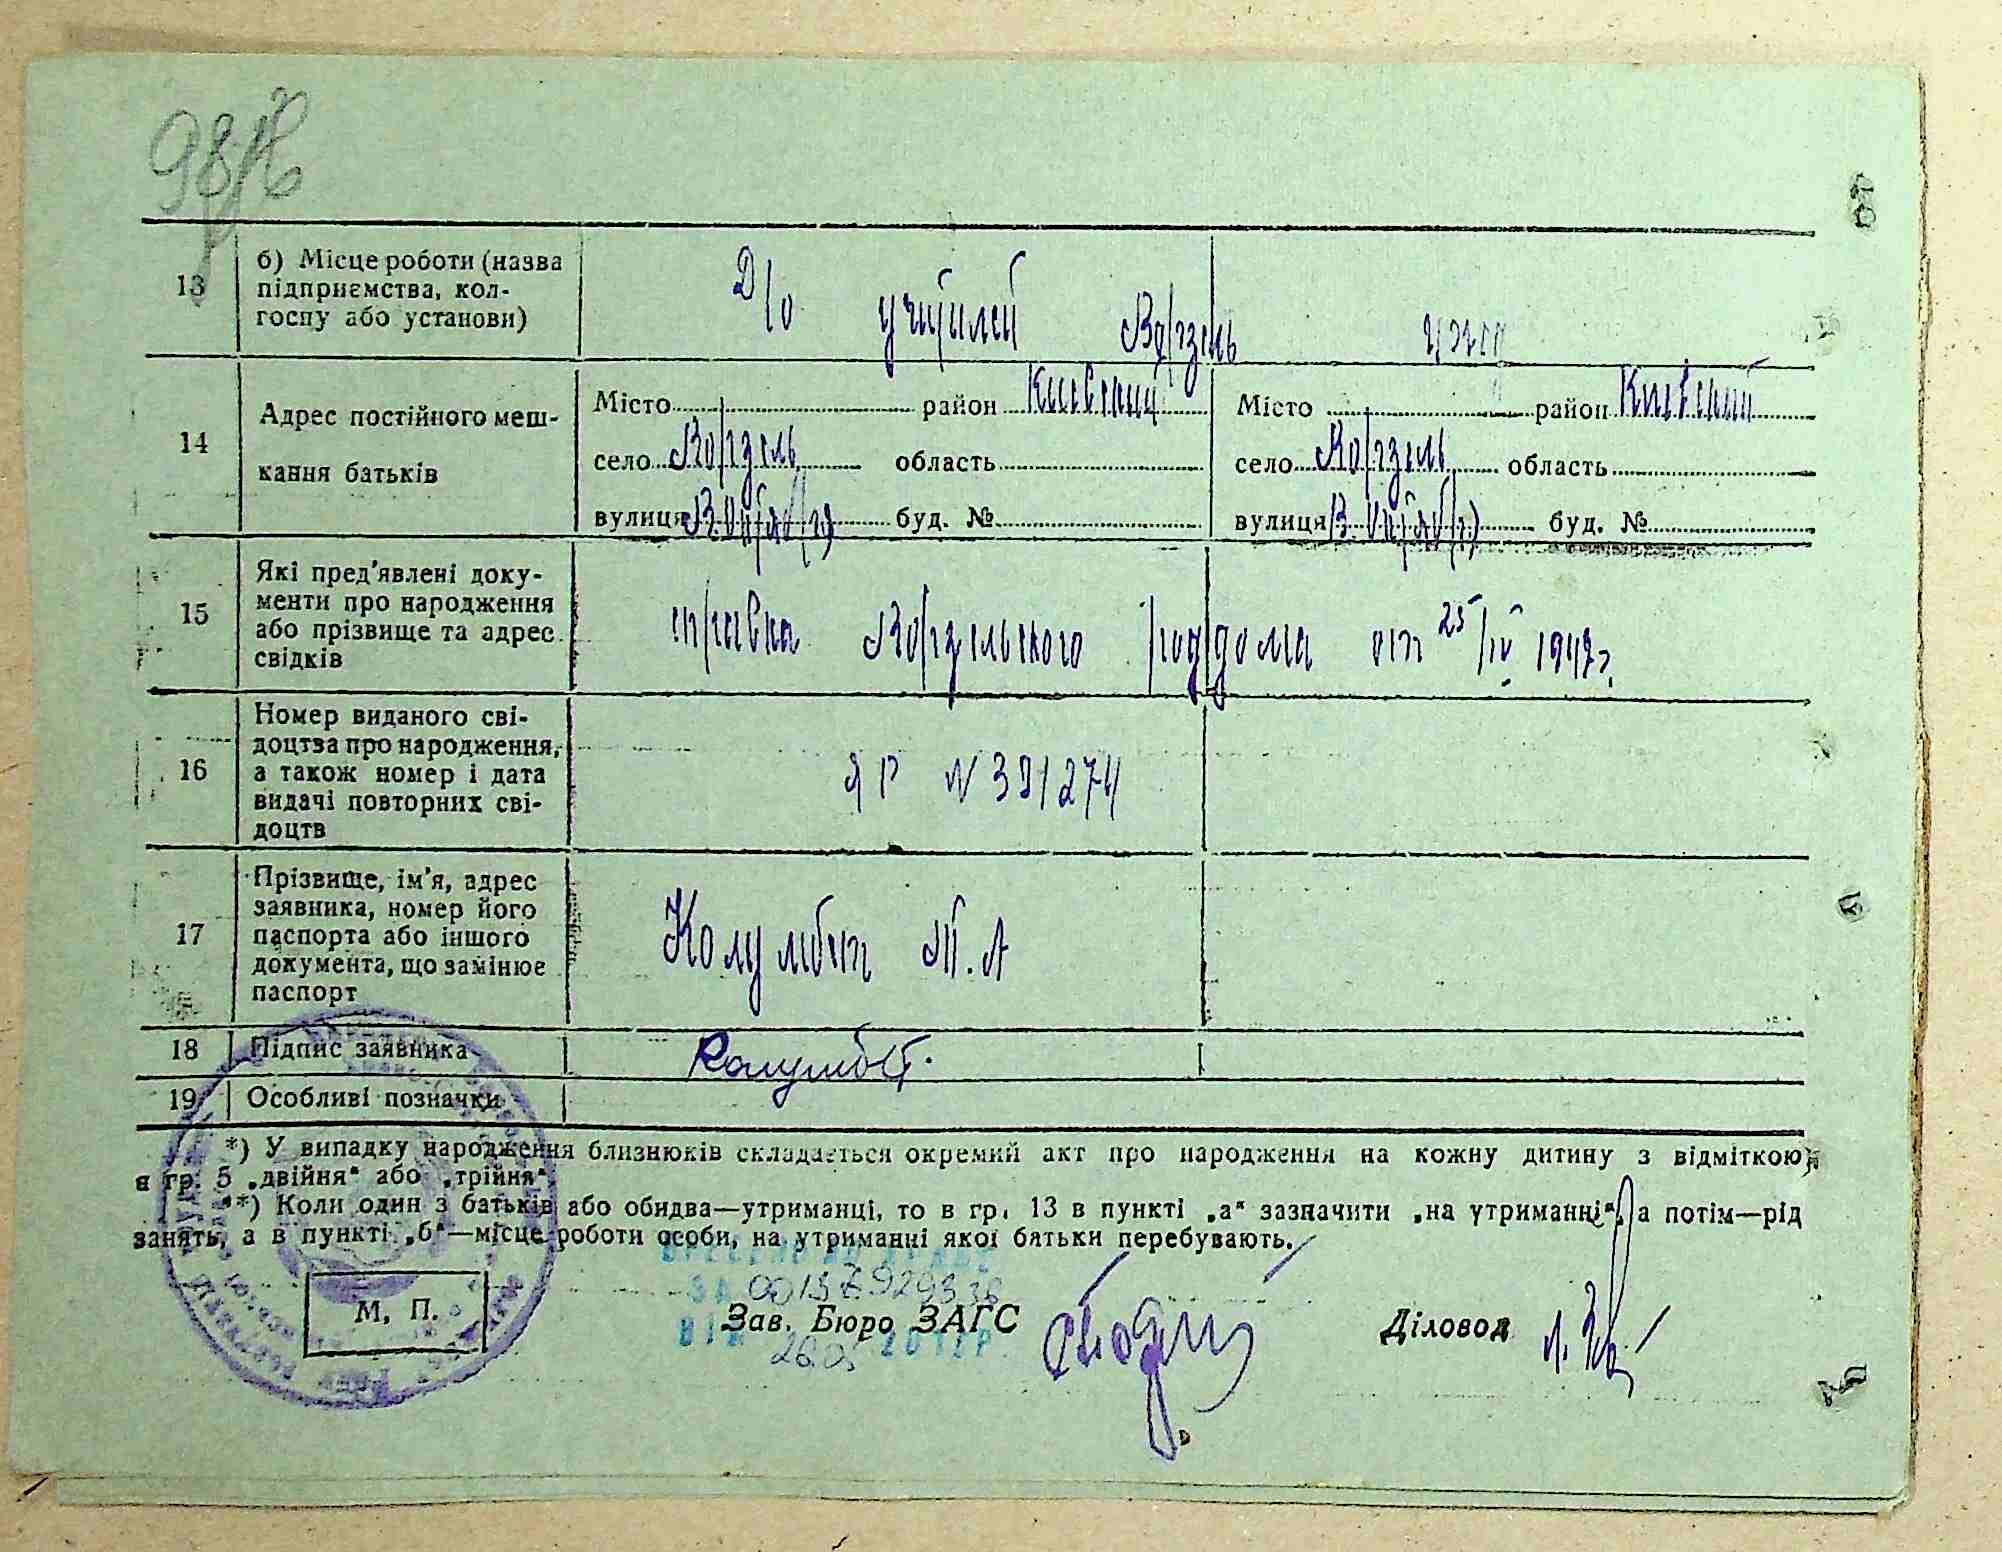 98
13 б) Місце роботи (назва
підприємства, кол-
госпу або установи)
Д/о учителей Ворзель
14 Адрес постійного меш-
кання батьків
Місто район Киевский
село Ворзель область
вулиця буд. №
Місто район Киевский
село Ворзель область
вулиця буд. №
15 Які пред'явлені доку-
менти про народження
або прізвище та адрес
свідків
справка Ворзельского роддома от 25/IV 1947г.
16 Номер виданого сві-
доцтва про народження,
а також номер і дата
видачі повторних сві-
доцтв
ЯР N 391274
17 Прізвище, ім'я, адрес
заявника, номер його
паспорта або іншого
документа, що замінює
паспорт
Колумбет Т. А
18 Підпис заявника
Колумбет.
19 Особливі позначки
*) У випадку народження близнюків складається окремий акт про народження на кожну дитину з відміткою
в гр. 5 „двійня“ або „трійня“.
**) Коли один з батьків або обидва—утриманці, то в гр. 13 в пункті „а“ зазначити „на утриманні“, а потім—рід
занять, а в пункті „б“—місце роботи особи, на утриманні якої батьки перебувають.
ЗА 00157929338
М. П. Зав. Бюро ЗАГС Діловод
ВІД 26.05 2012 Р.